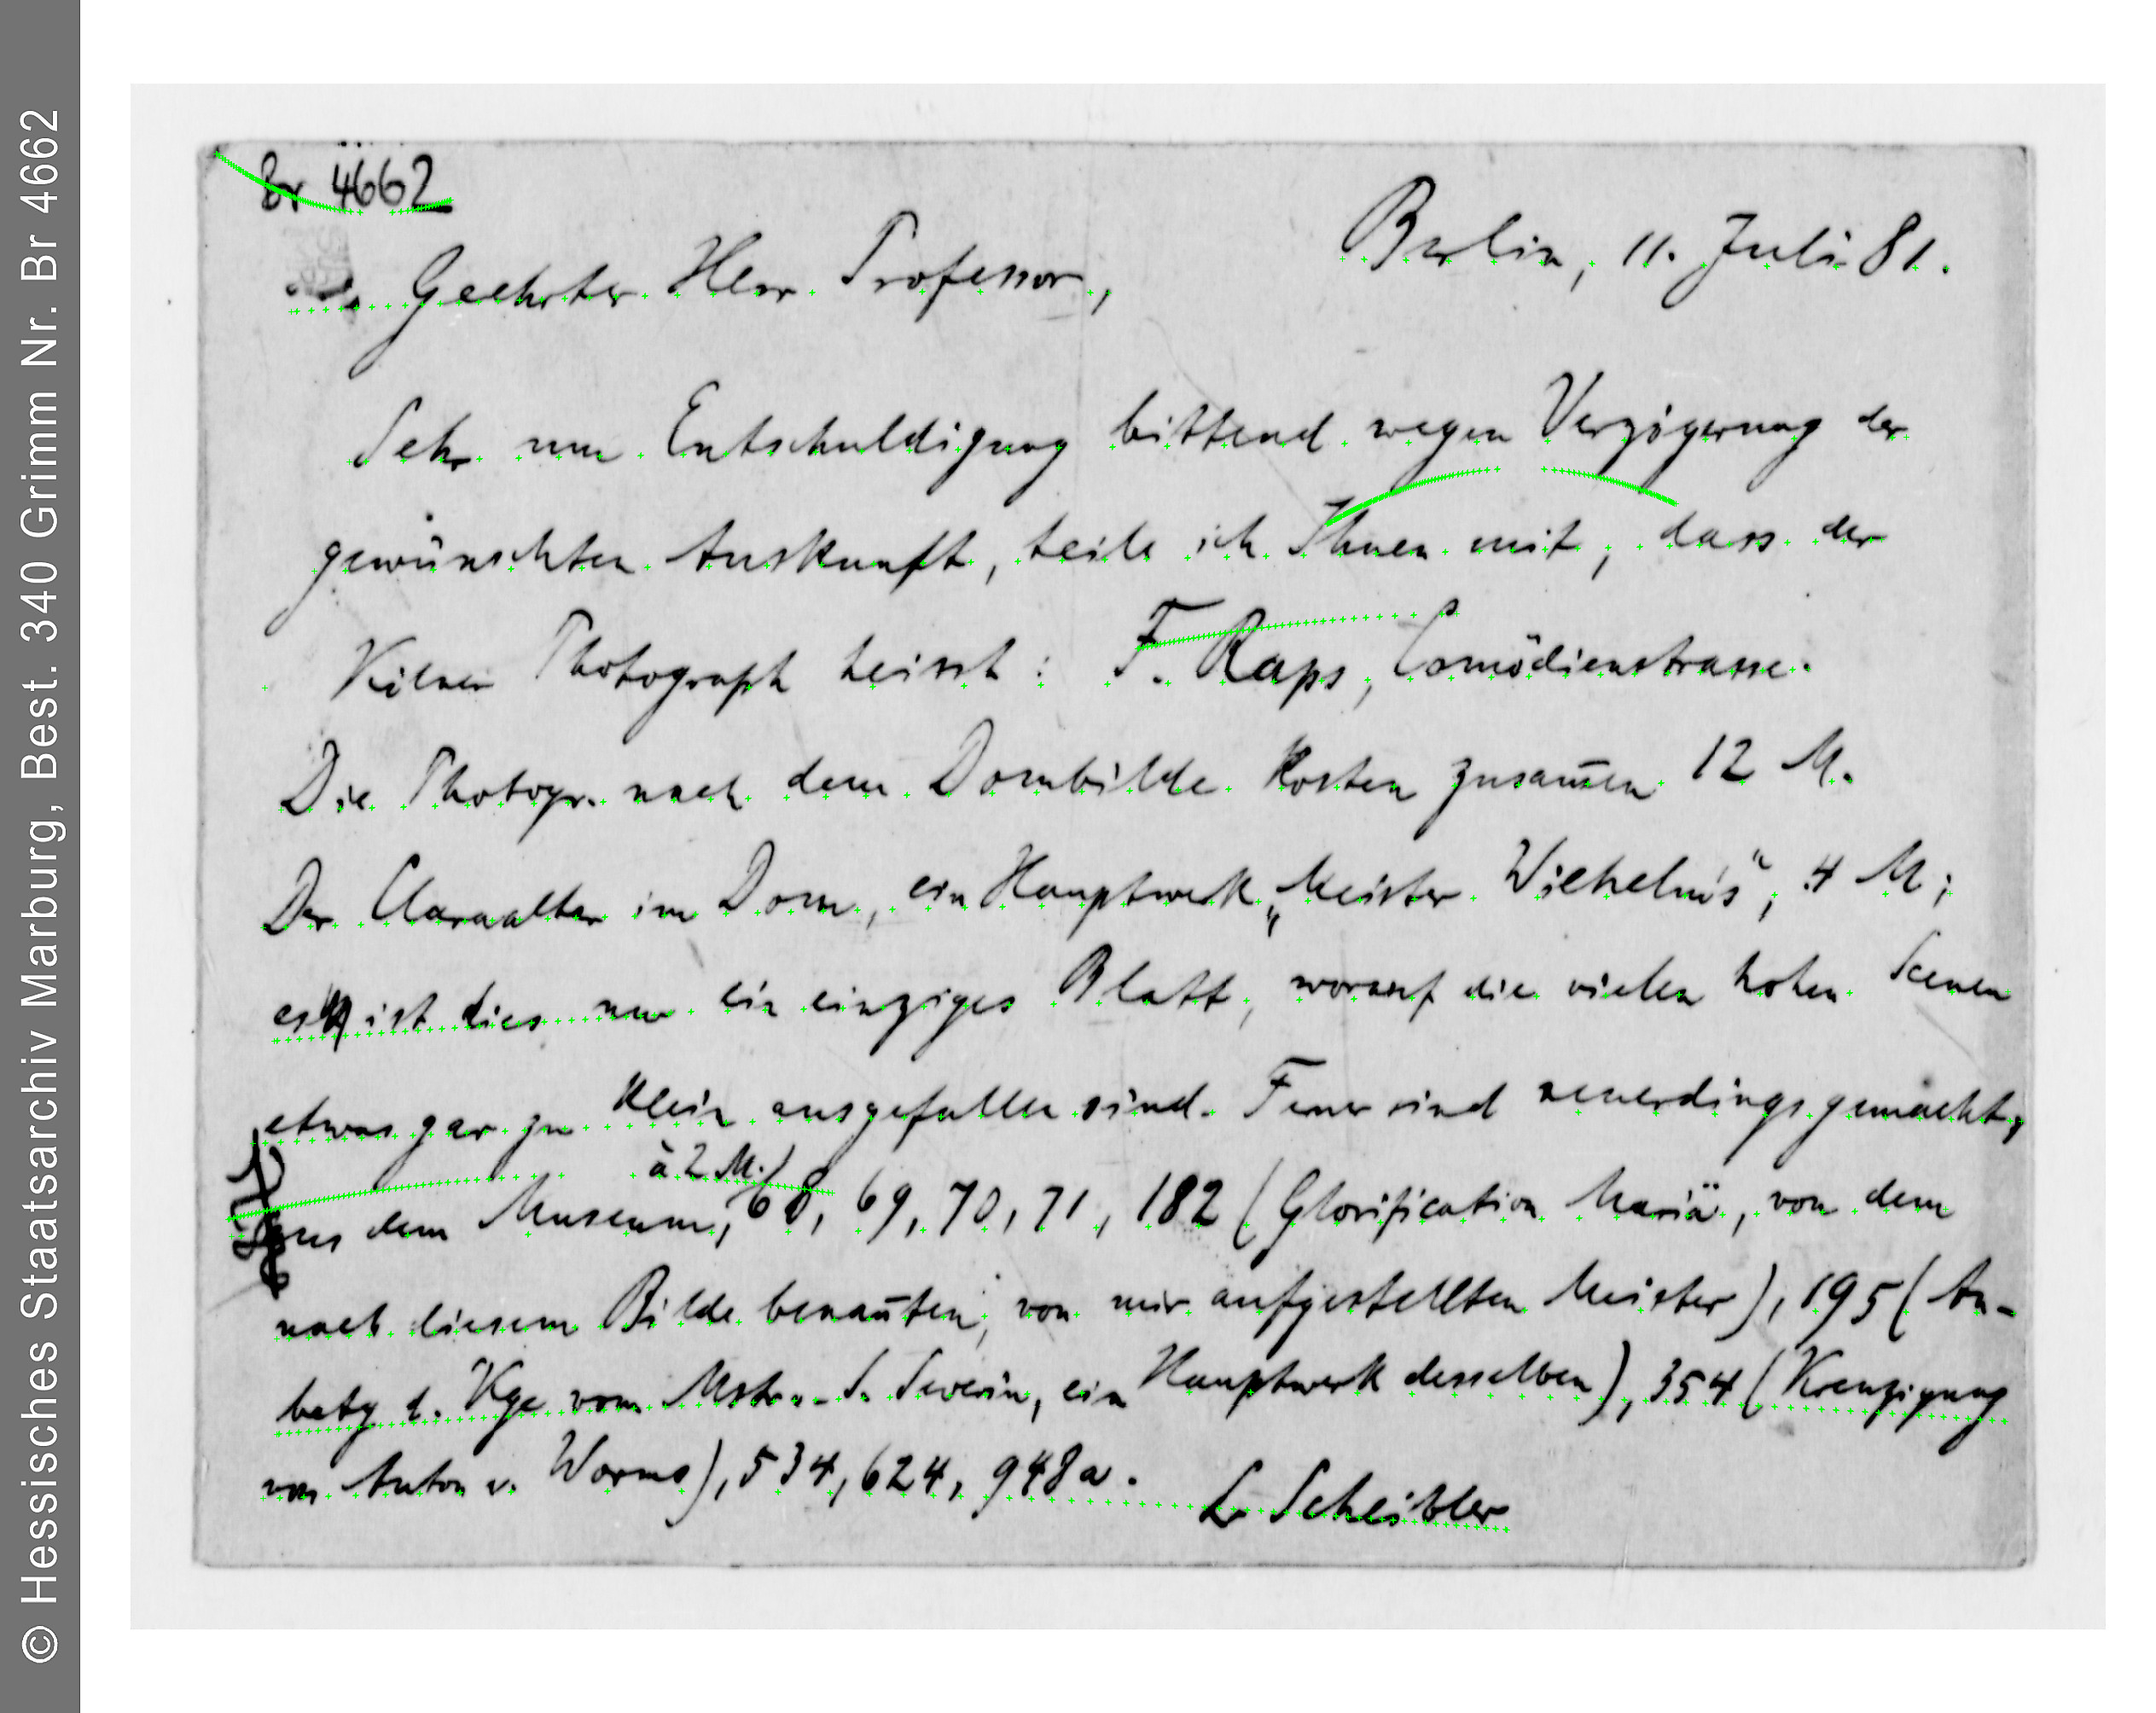 © Hessisches Staatsarchiv Marburg, Best. 340 Grimm Nr. Br 4662
Br 4662
Berlin, 11. Juli 81.
Geehrter Herr Professor,
Sehr um Entschuldigung bittend wegen Verzögerung der
gewünschten Auskunft, teile ich Ihnen mit, dass der
Kölner Photograph heisst: F. Raps, Comödienstrasse.
Die Photogr. nach dem Dombilde kosten zusam̄en 12 M.
Der Claraaltar im Dom, ein Hauptwerk „Meister Wilhelms“, 4 M;
es ist dies nur ein einziges Blatt, worauf die vielen hohen Scenen
etwas gar zu klein ausgefallen sind. Ferner sind neuerdings gemacht,
à 2 M.)
aus dem Museum, 68, 69, 70, 71, 182 (Glorification Mariä, von dem
nach diesem Bilde benan̄ten, von mir aufgestellten Meister), 195 (An-
betg d. Kge vom Mstr. S. Severin, ein Hauptwerk desselben), 354 (Kreuzigung
von Anton v. Worms), 534, 624, 948a.
L Scheibler